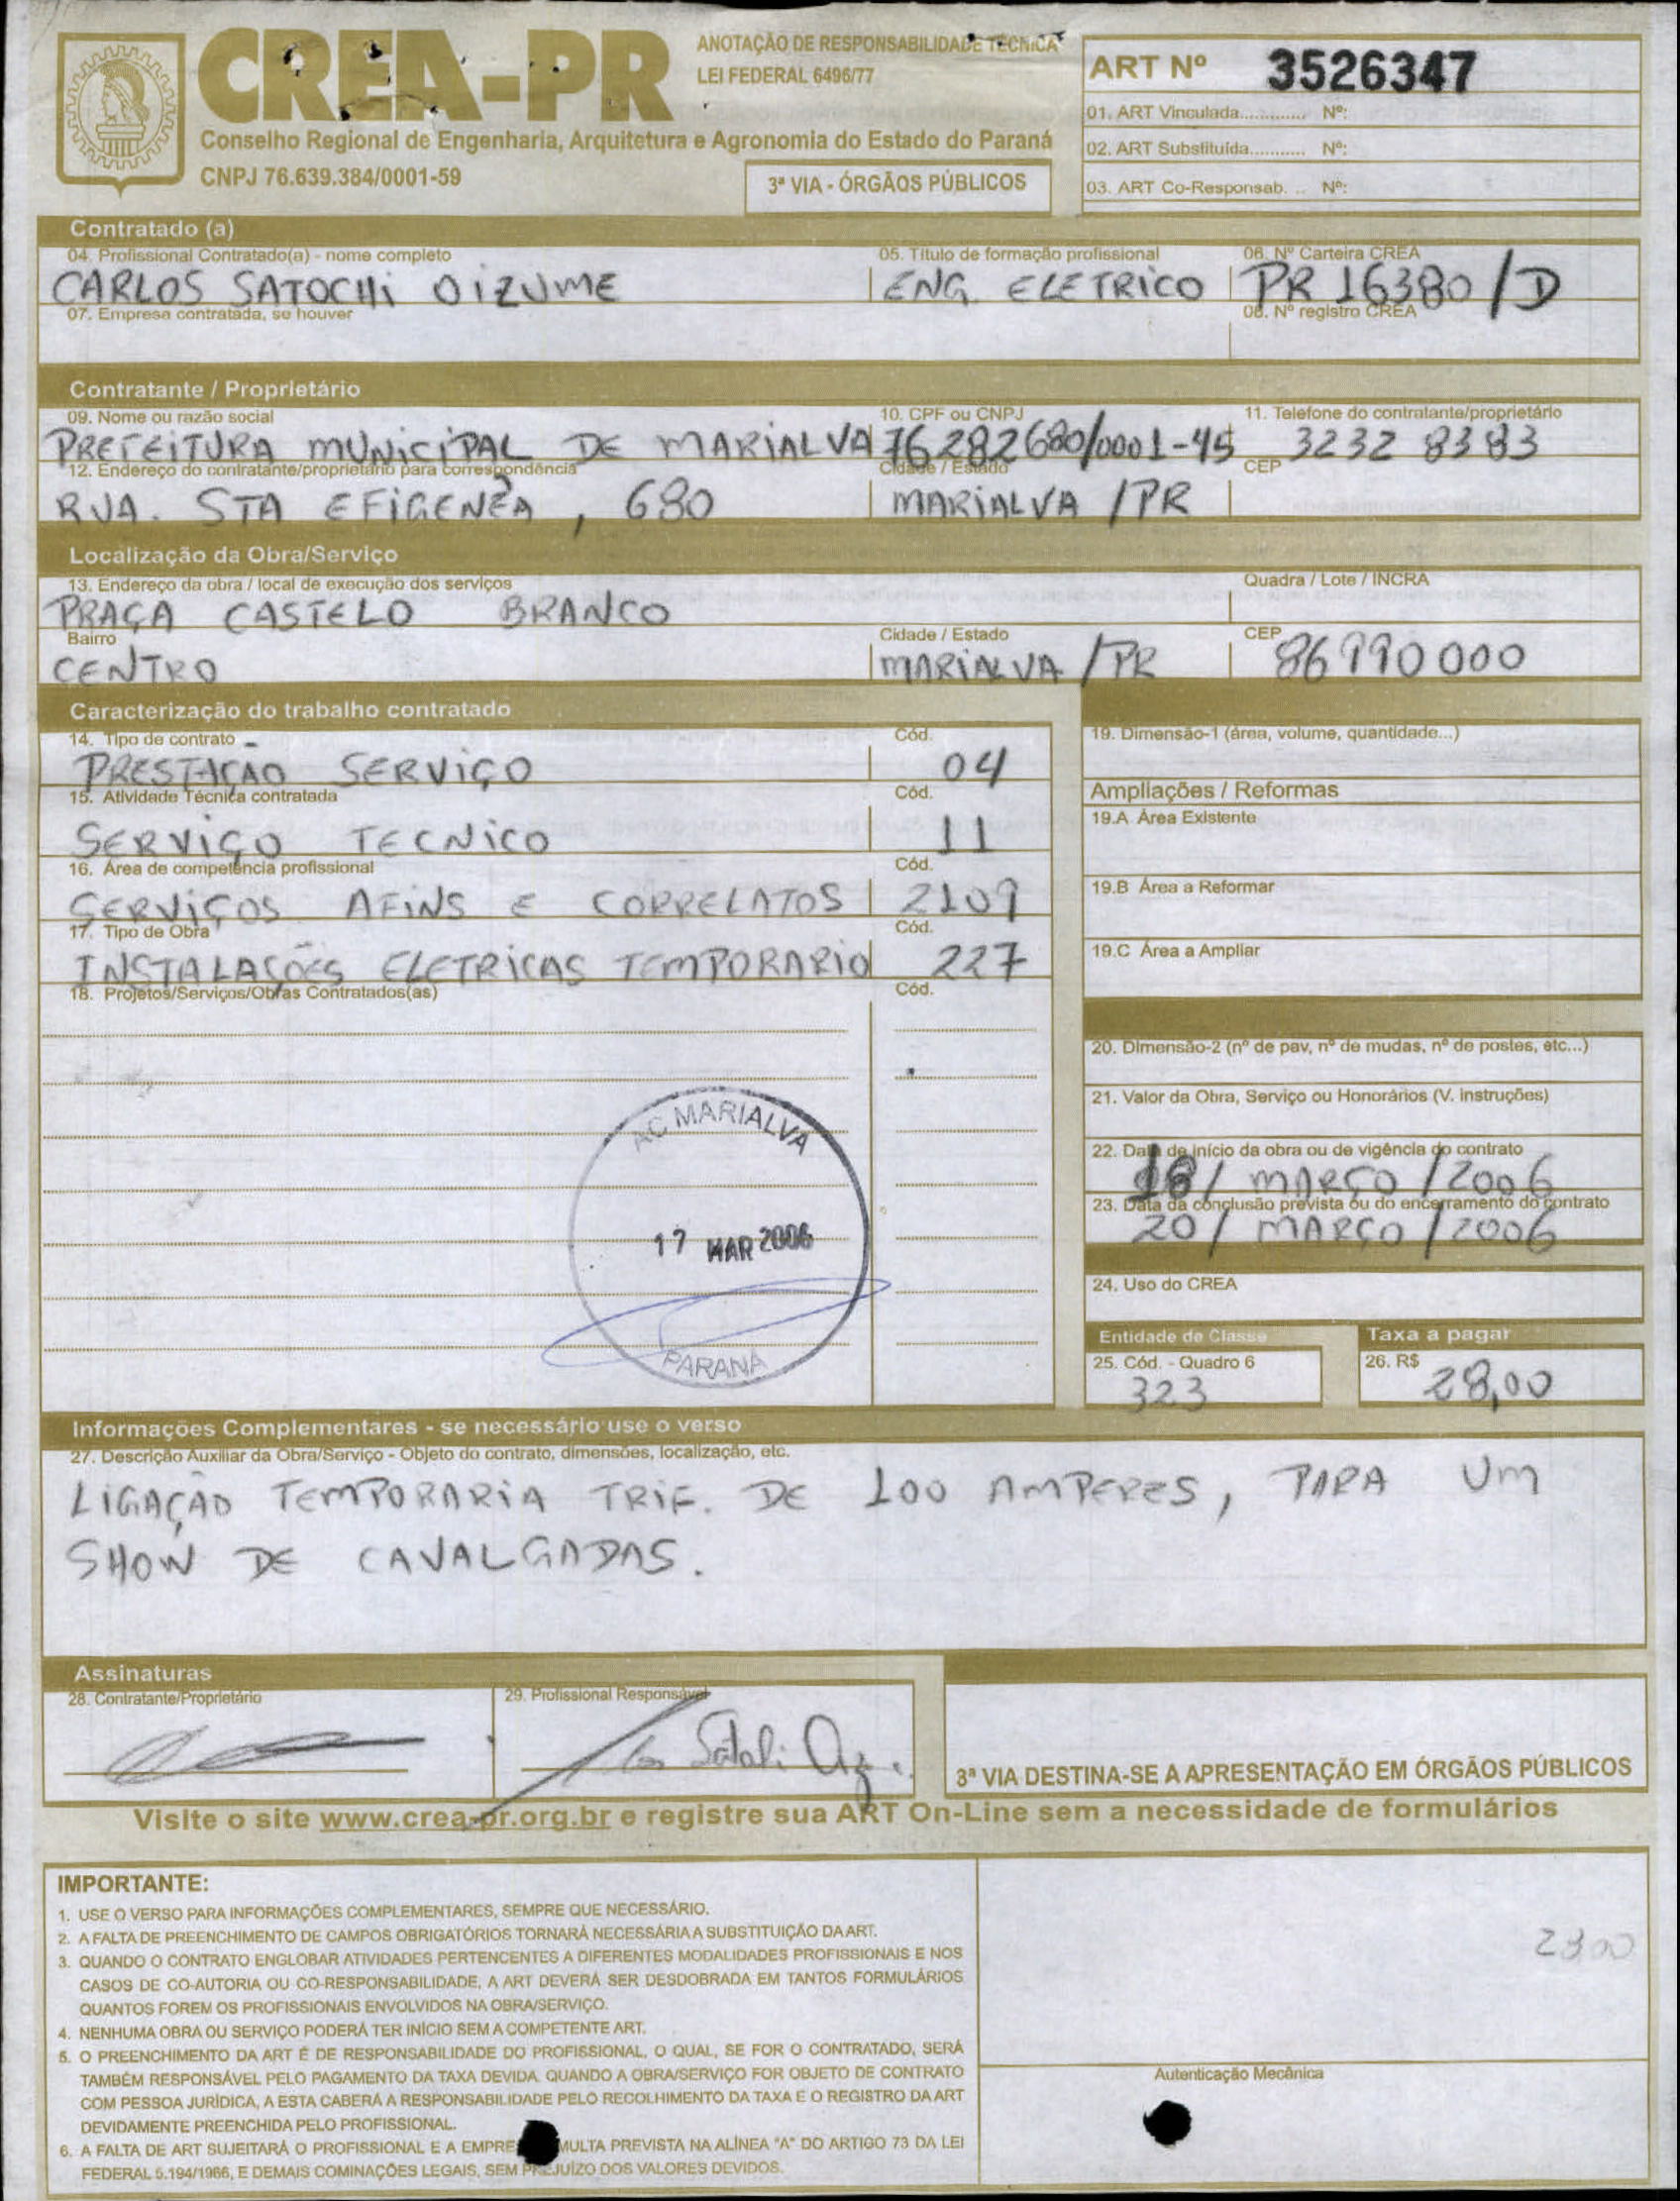 CREA-PR
ANOTAÇÃO DE RESPONSABILIDADE TÉCNICA
LEI FEDERAL 6496/77
Conselho Regional de Engenharia, Arquitetura e Agronomia do Estado do Paraná
CNPJ 76.639.384/0001-59
3ª VIA - ÓRGÃOS PÚBLICOS
ART Nº 3526347
01. ART Vinculada............. Nº:
02. ART Substituída........... Nº:
03. ART Co-Responsab. .. Nº:
Contratado (a)
04. Profissional Contratado(a) - nome completo 05. Título de formação profissional 06. Nº Carteira CREA
CARLOS SATOCHi OiZUME ENG. ELETRICO PR 16380/D
07. Empresa contratada, se houver 08. Nº registro CREA
Contratante / Proprietário
09. Nome ou razão social 10. CPF ou CNPJ 11. Telefone do contratante/proprietário
PREFEITURA MUNICIPAL DE MARIALVA 76282680/0001-45 3232 8383
12. Endereço do contratante/proprietário para correspondência Cidade / Estado CEP
RUA. STA EFIGENEA, 680 MARIALVA /PR
Localização da Obra/Serviço
13. Endereço da obra / local de execução dos serviços Quadra / Lote / INCRA
PRAÇA CASTELO BRANCO
Bairro Cidade / Estado CEP
CENTRO MARIALVA /PR 86990000
Caracterização do trabalho contratado
14. Tipo de contrato Cód.
PRESTAÇÃO SERVIÇO 04
15. Atividade Técnica contratada Cód.
SERVIÇO TECNICO 11
16. Área de competência profissional Cód.
SERVIÇOS AFINS E CORRELATOS 2109
17. Tipo de Obra Cód.
INSTALAÇÕES ELETRICAS TEMPORARIO 227
18. Projetos/Serviços/Obras Contratados(as) Cód.
AC MARIALVA
17 MAR 2006
PARANÁ
19. Dimensão-1 (área, volume, quantidade...)
Ampliações / Reformas
19.A Área Existente
19.B Área a Reformar
19.C Área a Ampliar
20. Dimensão-2 (nº de pav, nº de mudas, nº de postes, etc...)
21. Valor da Obra, Serviço ou Honorários (V. Instruções)
22. Data de início da obra ou de vigência do contrato
18/ MARÇO /2006
23. Data da conclusão prevista ou do encerramento do contrato
20/ MARÇO /2006
24. Uso do CREA
Entidade de Classe Taxa a pagar
25. Cód. - Quadro 6 26. R$
323 28,00
Informações Complementares - se necessário use o verso
27. Descrição Auxiliar da Obra/Serviço - Objeto do contrato, dimensões, localização, etc.
LIGAÇÃO TEMPORARIA TRIF. DE 100 AMPERES, PARA UM
SHOW DE CAVALGADAS.
Assinaturas
28. Contratante/Proprietário 29. Profissional Responsável
3ª VIA DESTINA-SE A APRESENTAÇÃO EM ÓRGÃOS PÚBLICOS
Visite o site www.crea-pr.org.br e registre sua ART On-Line sem a necessidade de formulários
IMPORTANTE:
1. USE O VERSO PARA INFORMAÇÕES COMPLEMENTARES, SEMPRE QUE NECESSÁRIO.
2. A FALTA DE PREENCHIMENTO DE CAMPOS OBRIGATÓRIOS TORNARÁ NECESSÁRIA A SUBSTITUIÇÃO DA ART.
3. QUANDO O CONTRATO ENGLOBAR ATIVIDADES PERTENCENTES A DIFERENTES MODALIDADES PROFISSIONAIS E NOS
CASOS DE CO-AUTORIA OU CO-RESPONSABILIDADE, A ART DEVERÁ SER DESDOBRADA EM TANTOS FORMULÁRIOS
QUANTOS FOREM OS PROFISSIONAIS ENVOLVIDOS NA OBRA/SERVIÇO.
4. NENHUMA OBRA OU SERVIÇO PODERÁ TER INÍCIO SEM A COMPETENTE ART.
5. O PREENCHIMENTO DA ART É DE RESPONSABILIDADE DO PROFISSIONAL, O QUAL, SE FOR O CONTRATADO, SERÁ
TAMBÉM RESPONSÁVEL PELO PAGAMENTO DA TAXA DEVIDA. QUANDO A OBRA/SERVIÇO FOR OBJETO DE CONTRATO
COM PESSOA JURÍDICA, A ESTA CABERÁ A RESPONSABILIDADE PELO RECOLHIMENTO DA TAXA E O REGISTRO DA ART
DEVIDAMENTE PREENCHIDA PELO PROFISSIONAL.
6. A FALTA DE ART SUJEITARÁ O PROFISSIONAL E A EMPRE MULTA PREVISTA NA ALÍNEA "A" DO ARTIGO 73 DA LEI
FEDERAL 5.194/1966, E DEMAIS COMINAÇÕES LEGAIS, SEM PREJUÍZO DOS VALORES DEVIDOS.
2800
Autenticação Mecânica